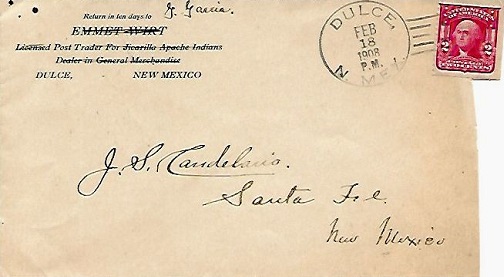 Return in ten days to
G. Garcia.
EMMET WIRT
Licensed Post Trader For Jicarilla Apache Indians
Dealer in General Merchandise
DULCE, NEW MEXICO
DULCE,
FEB
18
1908
P.M.
N. MEX.
2 2
TWO CENTS
J. S. Candelario.
Santa Fe.
New Mexico